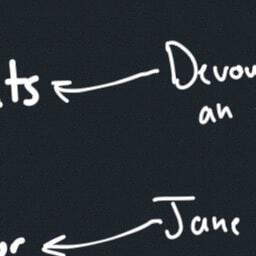 ts Devou
an
or Jane